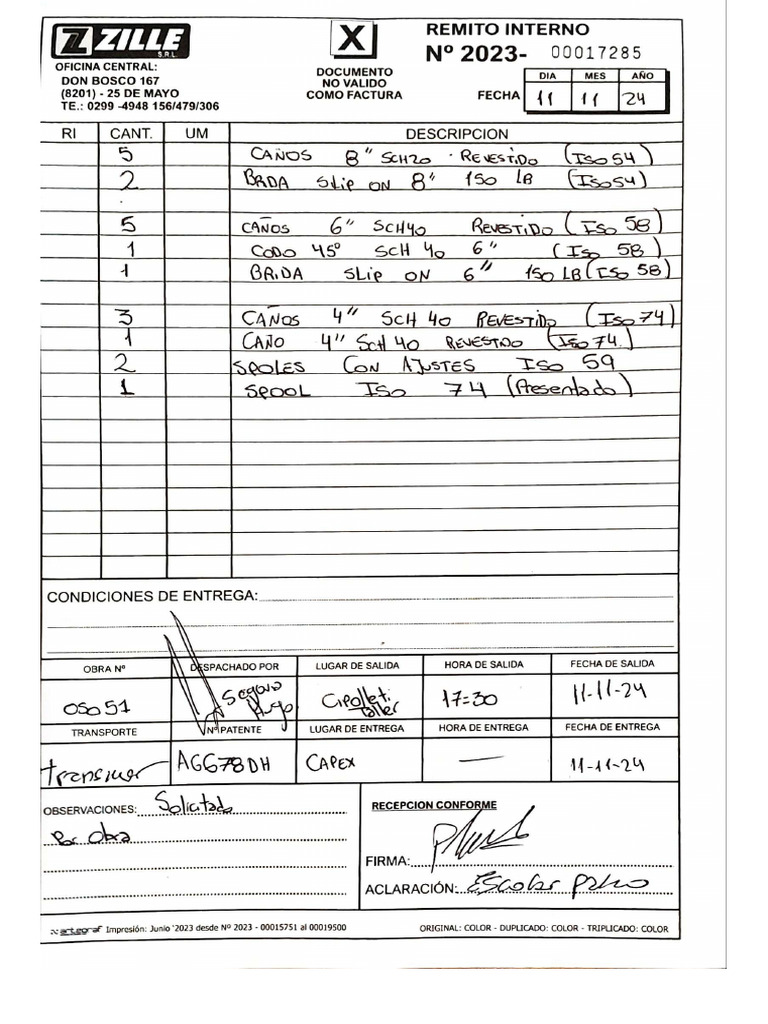 ZILLE
S.R.L.
OFICINA CENTRAL:
DON BOSCO 167
(8201) - 25 DE MAYO
TE.: 0299 -4948 156/479/306
X
DOCUMENTO
NO VALIDO
COMO FACTURA
REMITO INTERNO
Nº 2023- 00017285
FECHA DIA MES AÑO
11 11 24
RI CANT. UM DESCRIPCION
5 CAÑOS 8" SCH20 REVESTIDO (ISO 54)
2 BRDA SLIP ON 8" 150 LB (ISO 54)
5 CAÑOS 6" SCH40 REVESTIDO (ISO 58)
1 CODO 45° SCH 40 6" (ISO 58)
1 BRIDA SLIP ON 6" 150 LB (ISO 58)
3 CAÑOS 4" SCH 40 REVESTIDO (ISO 74)
1 CAÑO 4" SCH 40 REVESTIDO (ISO 74)
2 SPOLES CON AJUSTES ISO 59
1 SPOOL ISO 74 (Presentado)
CONDICIONES DE ENTREGA:
OBRA Nº DESPACHADO POR LUGAR DE SALIDA HORA DE SALIDA FECHA DE SALIDA
OSO51 Segovia Hugo Cipolleti Taller 17=30 11-11-24
TRANSPORTE Nº PATENTE LUGAR DE ENTREGA HORA DE ENTREGA FECHA DE ENTREGA
AG678DH CAPEX — 11-11-24
OBSERVACIONES: Solicitado
Por Obra
RECEPCION CONFORME
FIRMA:
ACLARACIÓN: Escobar
artegraf Impresión: Junio '2023 desde Nº 2023 - 00015751 al 00019500
ORIGINAL: COLOR - DUPLICADO: COLOR - TRIPLICADO: COLOR